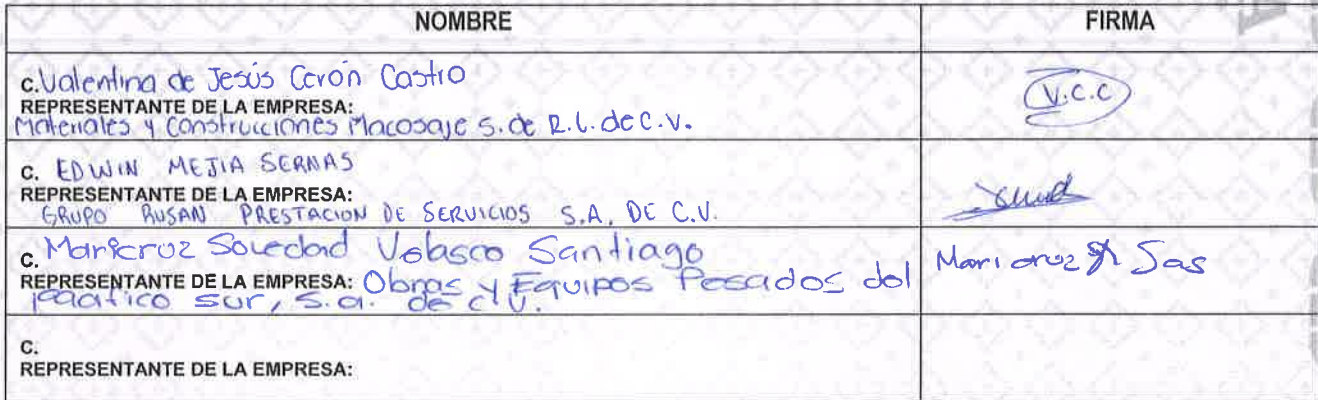 NOMBRE FIRMA
C. Valentina de Jesús Cerón Castro
REPRESENTANTE DE LA EMPRESA:
Materiales y Construcciones Macosaje S. de R.L. de C.V.
V.C.C
C. EDWIN MEJIA SERNAS
REPRESENTANTE DE LA EMPRESA:
GRUPO RUSAN PRESTACION DE SERVICIOS S.A. DE C.V.
C. Maricruz Soledad Velasco Santiago
REPRESENTANTE DE LA EMPRESA: Obras y Equipos Pesados del
pacifico sur, S.a. de c.v.
Maricruz
C.
REPRESENTANTE DE LA EMPRESA: